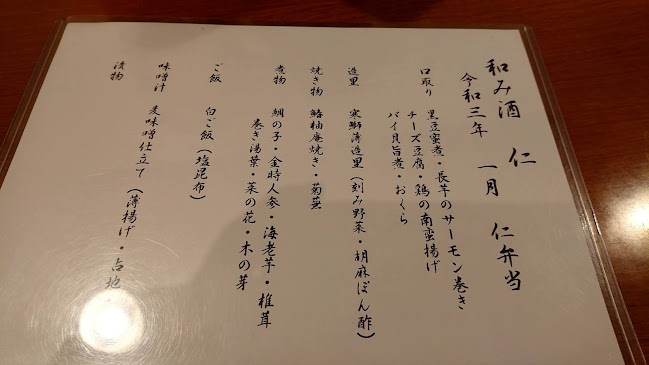 和み酒　仁
令和三年　一月　仁弁当
口取り　黒豆蜜煮・長芋のサーモン巻き
チーズ豆腐・鶏の南蛮揚げ
バイ貝旨煮・おくら
造里　寒鰤薄造里（刻み野菜・胡麻ぽん酢）
焼き物　鰆柚庵焼き・菊蕪
煮物　鯛の子・金時人参・海老芋・椎茸
巻き湯葉・菜の花・木の芽
ご飯　白ご飯（塩昆布）
味噌汁　麦味噌仕立て（薄揚げ・占地
漬物